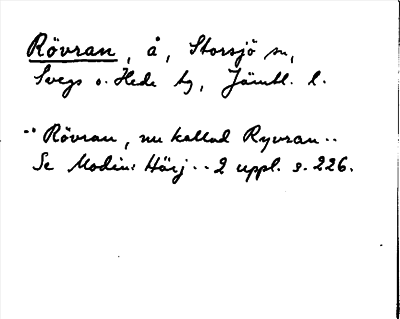 Rövran, å, Storsjö sn,
Svegs o. Hede tg, Jämtl. l.
.. Rövran, nu kallad Ryvran..
Se Modin: Härj.. 2 uppl. s. 226.